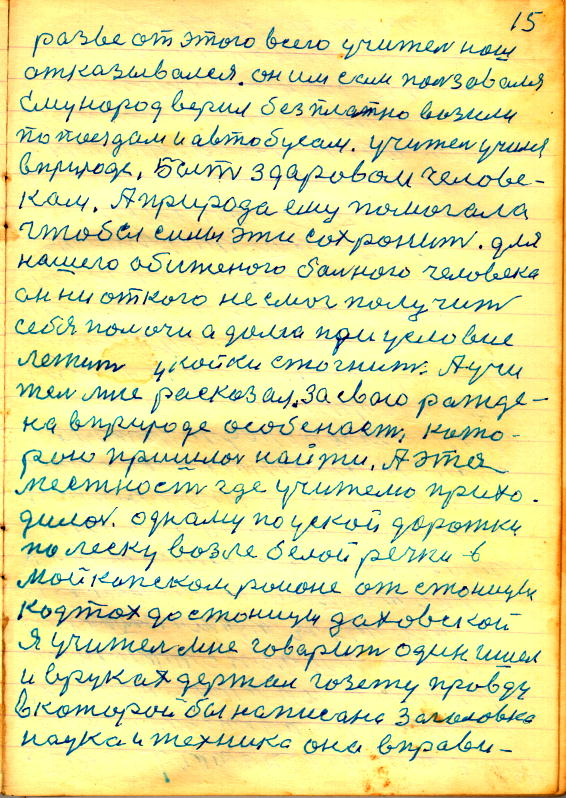 15
разве от этого всего учител наш
отказывался. он им сам ползовался
Ему народ верил безплатно возили
по поездам и автобусам. учител учился
в природе. Быть здаровом челове-
кам. А природа ему помогала
чтобы силы эти сохронить. для
нашего обиженого балного человека
он ни откого не смог получить
себя помочи а долга при условие
лежить укойки стогнить. А учи
тел мне расказал. за сваю ражде-
на в природе особеность, кото-
рою пришлос найти. А эта
местность где учителю прихо-
дилос. одному по уской дорожки
по леску возле белой речки в
Майкопском районе от станицы
до станицы даховской
Я учител мне говарить один шшел
и вруках держал гозету провду
в которой был написана заголовка
наука и техника она вправи-